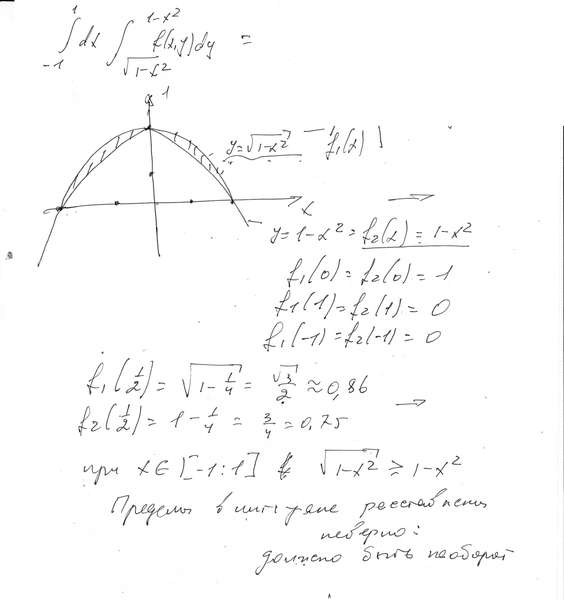 ∫_{-1}^{1} dx ∫_{√(1-x²)}^{1-x²} f(x,y)dy =
1
y=√(1-x²) f₁(x)
x
y=1-x²=f₂(x)=1-x²
f₁(0)=f₂(0)=1
f₁(1)=f₂(1)=0
f₁(-1)=f₂(-1)=0
f₁(1/2)=√(1-1/4)=√3/2≈0,86
f₂(1/2)=1-1/4=3/4=0,75
при x∈[-1:1] √(1-x²)≥1-x²
Пределы в интеграле расставлены
неверно:
должно быть наоборот